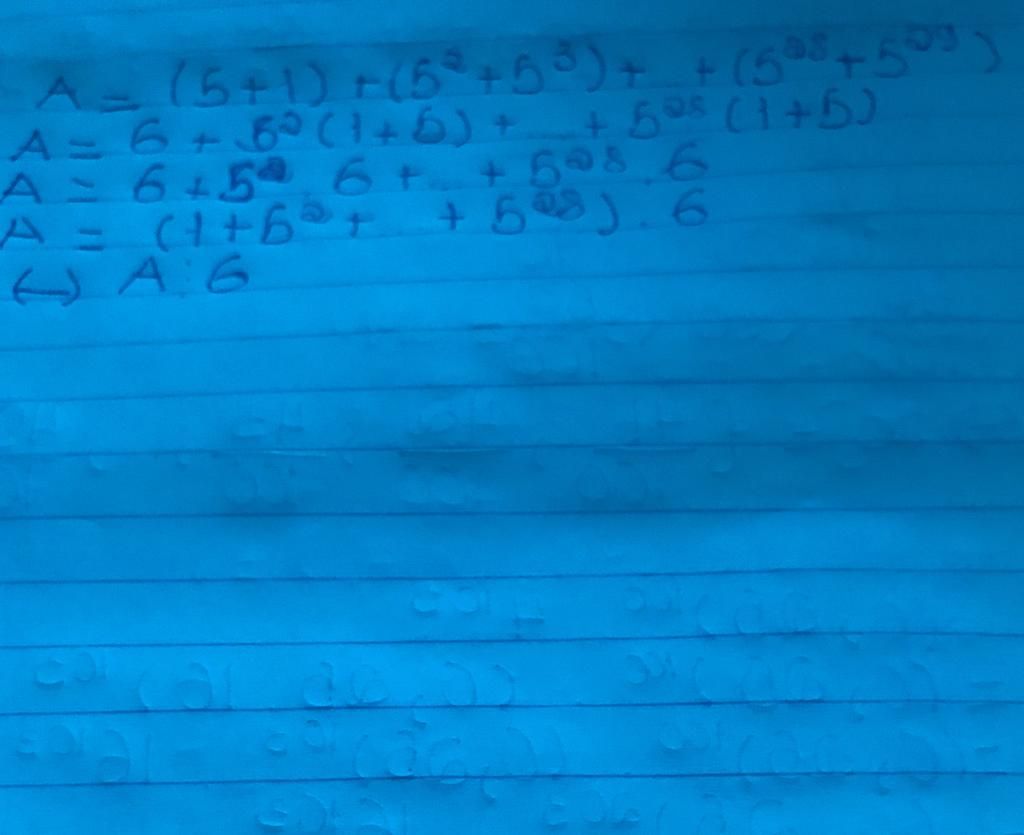 A = (5+1) + (5² + 5³) + .. + (5²⁸ + 5²⁹)
A = 6 + 5²(1+5) + ... + 5²⁸(1+5)
A = 6 + 5² . 6 + .. + 5²⁸ . 6
A = (1 + 5² + .. + 5²⁸) . 6
(→) A ⋮ 6